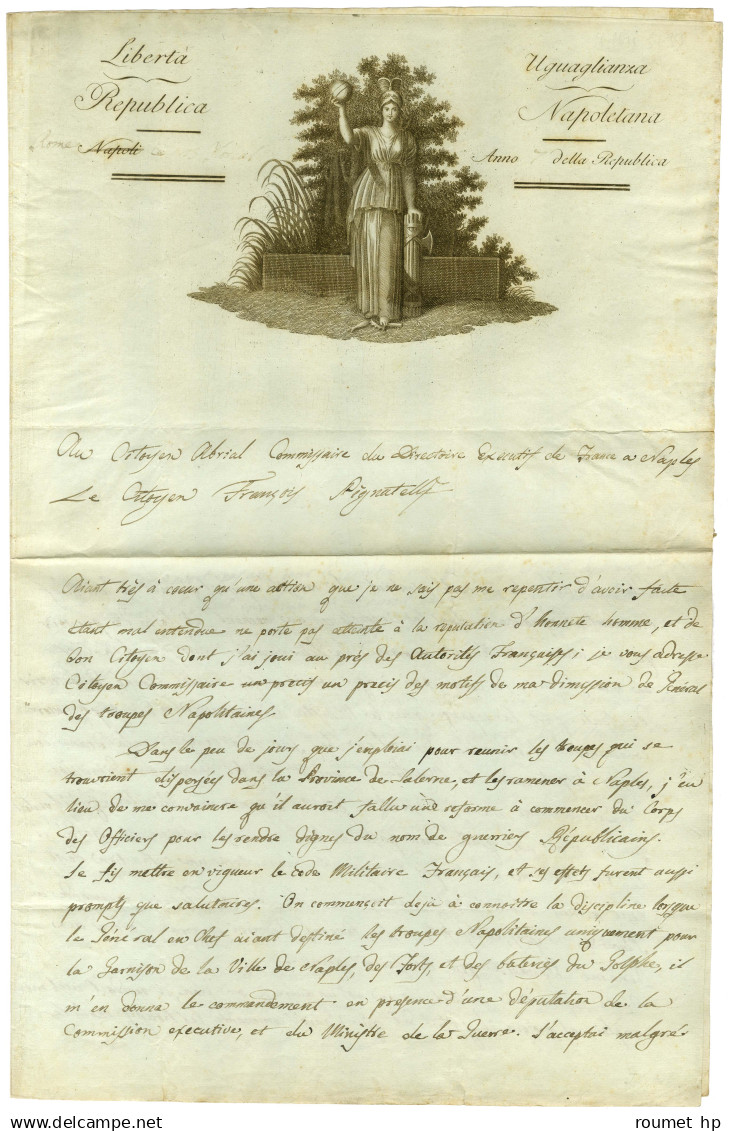 Libertà
Uguaglianza
Republica
Napoletana
Napoli
Anno della Republica
Au Citoyen Abrial Commissaire du Directoire Executif de France a Naples
Le Citoyen François Pignatelli
Aiant très à coeur qu'une action que je ne sais pas me repentir d'avoir faite
étant mal entendue ne porte pas atteinte à la reputation d'honnete homme, et de
bon Citoyen dont j'ai joui au près des Autorités Françaises; je vous adresse
Citoyen Commissaire un precis un precis des motifs de ma dimission de Général
des troupes Napolitaines.
Dans le peu de jours que j'emploiai pour reunir les troupes qui se
trouvoient dispersées dans la Province de Salerne, et les ramener à Naples, j'eu
lieu de me convaincre qu'il auroit fallu une reforme à commencer du Corps
des Officiers pour les rendre dignes du nom de guerriers Républicains.
Je fis mettre en vigueur le code Militaire Français, et ses effets furent aussi
prompts que salutaires. On commencoit deja à connoitre la discipline lorsque
le Général en Chef aiant destiné les troupes Napolitaines uniquement pour
la Garnison de la Ville de Naples, des Forts, et des bateries du Golphe, il
m'en donna le commandement en presence d'une députation de la
Commission executive, et du Ministre de la Guerre. J'acceptai malgré
roumet hp